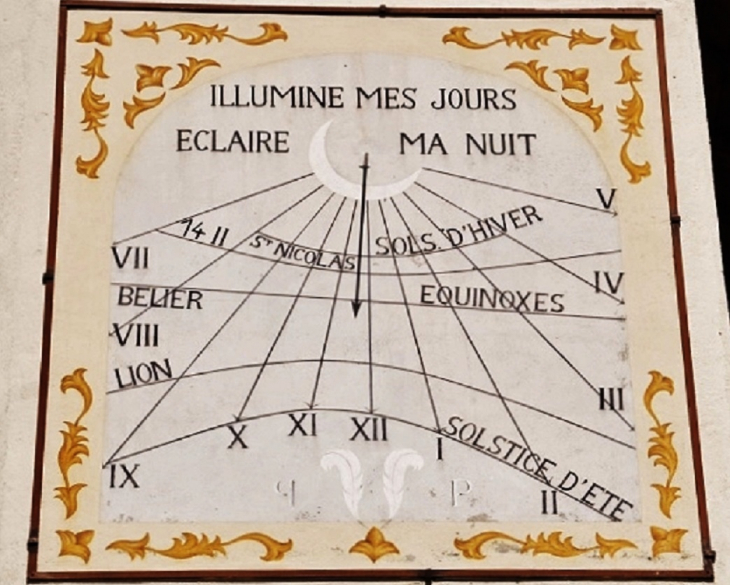 ILLUMINE MES JOURS
ECLAIRE MA NUIT
V
14 II ST NICOLAS SOLS. D'HIVER
VII
IV
BELIER EQUINOXES
VIII
LION
III
IX X XI XII I II
SOLSTICE D'ETE
q p